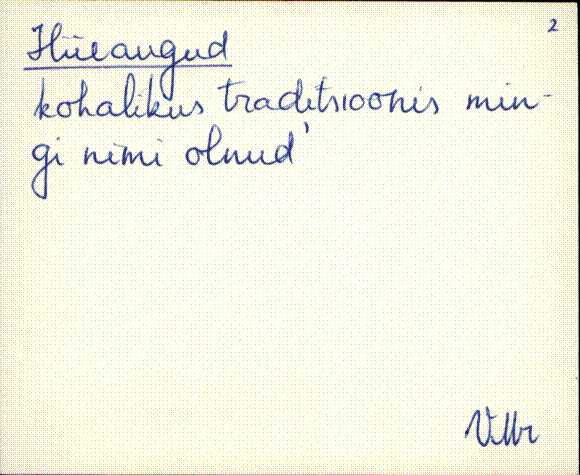 2
Hüeaugud
kohalikus traditsioonis min-
gi nimi olnud'
VMr